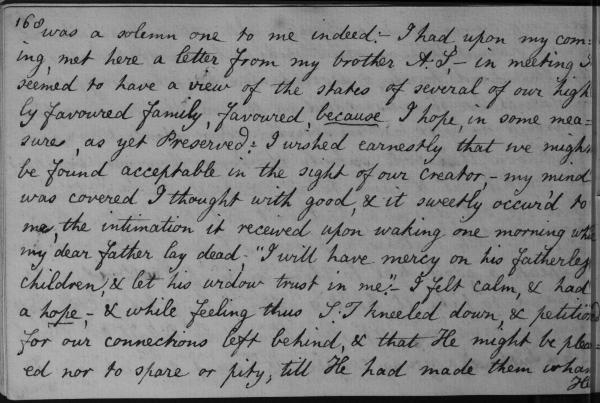 168 was a solemn one to me indeed:- I had upon my com:
ing, met here a letter from my brother A. S,- in meeting I
seemed to have a view of the states of several of our high
ly favoured family, favoured, because I hope, in some mea-
sure, as yet Preserved: I wished earnestly that we might
be found acceptable in the sight of our creator,- my mind
was covered I thought with good, & it sweetly occur'd to
me, the intimation it received upon waking one morning while
my dear father lay dead, "I will have mercy on his fatherless
children, & let his widow trust in me."- I felt calm, & had
a hope,- & while feeling thus S. T kneeled down, & petition'd
for our connections left behind, & that He might be pleas
ed nor to spare or pity, till He had made them what
He